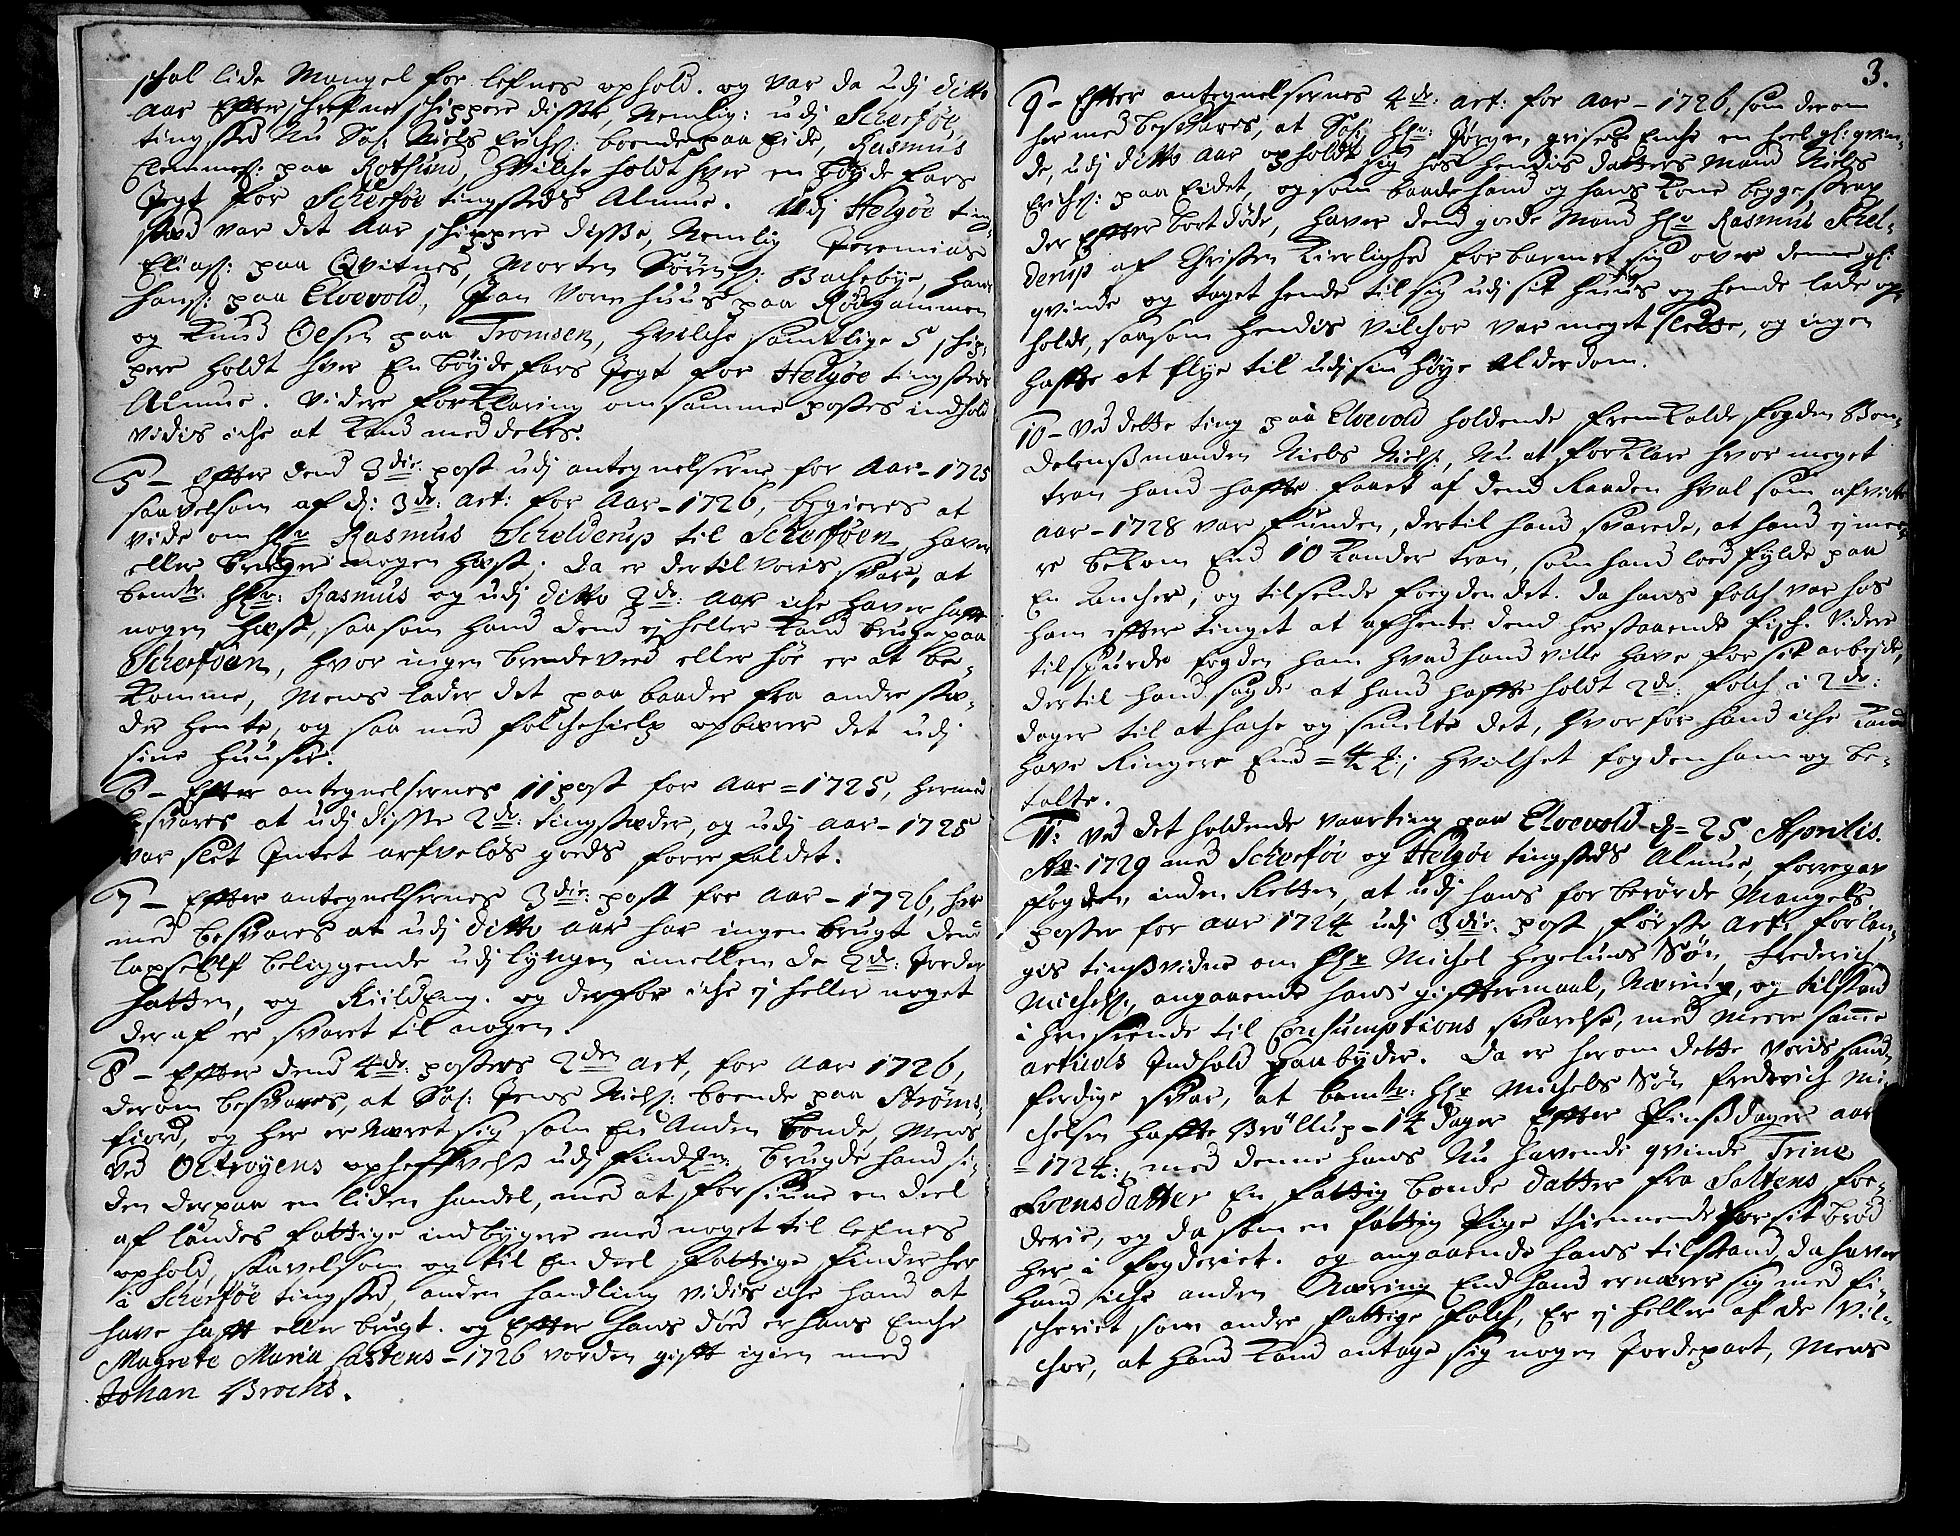 schal lide Mangel for lefnes ophold. og var da udj ditto
aar Efterschrefne schippere disse, Nemlig: udj Scherføe,
tingsted Nu Sal: Niels Erichs: boende paa Eide, Rasmus
Clemmes: paa Rotsund, hvilche holdt hver en bøyde fars
Jegt for Scherføe tingsteds Almue. Udj Helgøe ting-
sted var det Aar schippere disse, Nemlig Jeremias
Elias: paa Qvitnes, Morten Sørens: Bachebye, Hans
Hans: paa Elvevold, Jan Vorm huus paa Rødgammen
og Knud Olsen paa Tromsen, hvilche samtlige 5 schip-
pere holdt hver En bøyde fars Jegt for Helgøe tingsteds
Almue. videre forklaring om samme postes indhold
vidis iche at kand meddeles.
5 - Efter dend 3die: post udj antegnelserne for Aar - 1725
saavelsom af dj: 3de: art: for Aar - 1726, begieres at
vide om Hr Rasmus Schelderup til Scherføen, haver
eller bruger nogen hæst; Da er dertil voris svar, at
bemte: Hr: Rasmus og udj ditto 2de: aar iche haver hafft
nogen hæst, saasom hand dend ej heller kand bruge paa
Scherføen, hvor ingen brendeved eller høe er at be-
komme, Mens lader det paa baader fra andre stæ-
der hente, og saa med folchehielp opbærer det udj
sine huuse.
6 - Efter antegnelsernes 11 post for Aar = 1725, hermed
besvares at udj disse 2de: tingstæder, og udj aar - 1725
var slet Intet arfveløs goeds forrefaldet.
7 - Efter antegnelsernes 3die: post for Aar - 1726, her
med besvares at udj ditto aar har ingen brugt dend
laxe Elf beliggende udj Lyngen imellem de 2de: Jorder
Hatten, og Kiildeng. og derfor iche ej heller noget
deraf er svaret til nogen.
8 - Efter dend 4de: postes 2den art, for Aar 1726,
derom besvares, at Sal: Jens Niels: boende paa Strøms-
fiord, og her ernæret sig som En Anden bonde, Mens
ved Octroyens ophefvelse udj findm: brugde hand si-
den derpaa en liden handel, med at forsiune en deel
af landes fattige indbygere med noget til lefnes
ophold, saavelsom og til En deel fattige finder her
i Scherføe tingsted, anden handling vidis iche hand at
have hafft eller brugt. og Efter hans død er hans Enche
Magrete Maria Castens - 1726 vorden gifft igien med
Johan Brochs.
3.
9 - Efter antegnelsernes 4de: art: for Aar - 1726, som derom
hermed besvares, at Sal: Hr: Jørgen, grises Enche en heel gl: qvin-
de, udj ditto Aar opholdt sig hos hendis datters mand Niels
Erichs: paa Eidet, og som baade hand og hans kone begge strax
derefter bortdøde, haver dend goede Mand Hr Rasmus Schel-
derup af Christen Kierlighed forbarmet sig over denne gl:
qvinde og taget hende til sig udj sit huus og hende lade op-
holde, saasom hendis vilchor var meget slette, og ingen
haffte at flye til udj sin høye Alderdom.
10 - Ved dette ting paa Elvevold holdende fremkalde fogden Bon-
delensmanden Niels Niels:, Nu at forklare hvor meget
tran hand haffte faaet af dend Raaden hval som afvichte
aar - 1728 var funden, dertil hand svarede, at hand ej mee-
re bekom End 10 kander tran, som hand loed fylde paa
En Ancher, og tilsende fogden det. da hans folch var hos
ham efter tinget at afhente dend herstaaende fisch. Videre
tilspurde fogden ham hvad hand ville have for sit arbejde,
dertil hand sagde at hand haffte holdt 2de: folch i 2de:
dager til at hache og smelte det, hvorfor hand iche kand
have Ringere End = 4; hvilchet fogden ham og be-
talte.
11: Ved det holdende vaarting paa Elvevold d = 25 Aprilis.
Ao: 1729 med Scherføe og Helgøe tingsteds Almue, forregav
fogden, inden Retten, at udj hans forberørde Mangels
poster for aar 1724 udj 3die: post første art: forlan-
gis tingsvidne om Hr Michel Hegelunds Søn, Frederich
Michels:, angaaende hans gifftermaal, Næring, og tilstand
i henseende til Consumptions svarelse, med Meere samme
articuls Indhold paabyder. Da er herom dette voris sand-
ferdige svar, at bemte: Hr Michels Søn Frederich Mi-
chelsen haffte Brøllup - 14 dager Efter Pinsdager aar
= 1724:, med denne hans Nu havende qvinde Trine
Svensdatter En fattig bonde datter fra Saltens foe-
derie, og da som en fattig Pige thiennende for sit brød
her i fogderiet. og angaaende hans tilstand, da haver
hand iche anden Næring End hand ernærer sig med fi-
scheriet som andre fattige folch, Er ej heller af de vil-
chor, at hand kand antage sig nogen Jordepart, Mens